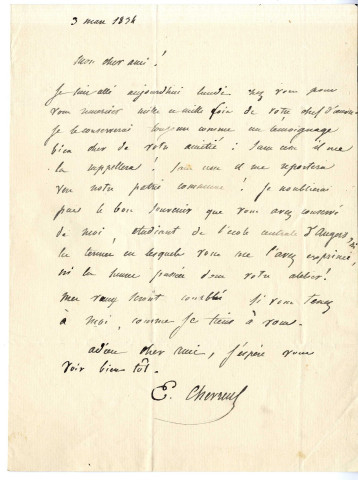 3 mars 1834
Mon cher ami !
Je suis allé aujourd'hui lundi chez vous pour
vous remercier mille et mille fois de votre chef d'œuvre
Je le conserverai toujours comme un témoignage
bien cher de votre amitié : sans cesse il me
la rappellera ! sans cesse il me reportera
vers notre patrie commune ! Je n'oublierai
pas le bon souvenir que vous avez conservé
de moi étudiant de l'école centrale d'Angers, ni
les termes en lesquels vous me l'avez exprimé,
ni la heure passée dans votre atelier !
Mes vœux seront comblés si vous tenez
à moi, comme je tiens à vous.
adieu cher ami, j'espère vous
voir bientôt.
E. Chevreul